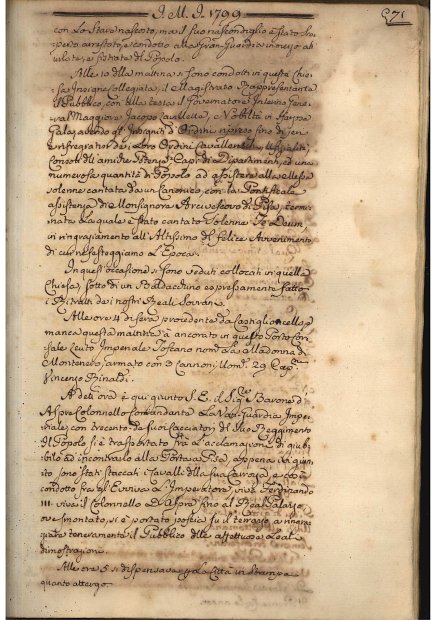 J. M. J. 1799
571
con lo stare nascosto, ma il suo nascondiglio è stato
arrestato, e condotto alla Gran Guardia in mezzo
e fischiate del Popolo.
Alle 10 della mattina si sono condotti in questa Chie-
sa Insigne Collegiata, il Magistrato Rappresentante
il Pubblico, con alla testa il Governatore Interino Gene-
ral Maggiore Jacopo Lavillette, e Nobiltà in
Gala, avendo gl'Insigniti d'Ordini ripreso sino da jeri
i loro Ordini Cavallereschi, Uffizialità,
Consoli di amiche Potenze, Capi di Dipartimenti, ed una
numerosa quantità di Popolo ad assistere alla Messa
solenne cantata da un Canonico, con la Pontificale
assistenza di Monsignore Arcivescovo di Pisa; termi-
nata la quale è stato cantato solenne Te Deum
in ringraziamento all'Altissimo del felice Avvenimento
di cui ne festeggiamo l'Epoca.
In quest'occasione si sono veduti collocati in quella
Chiesa, sotto di un Baldacchino espressamente fatto
i Ritratti de i nostri Reali Sovrani.
Alle ore 4 di sera procedente da Castiglioncello, e
manca questa mattina è ancorato in questo Porto
Leuto Imperiale Toscano nom.º La Madonna di
Montenero, armato con 2 Cannoni, Uom.i 29 Cap.n
Vincenzo Rinaldi.
A detta ora è qui giunto S. E. il Sig.re Barone d'
Aspre Colonnello Comandante la Van-Guardia Impe-
riale, con trecento de suoi Cacciatori del suo Reggimento.
Il Popolo si è trasportato fra l'acclamazioni di giub-
bilo ad incontrarlo alla Porta a Pisa, appena quà giun-
to sono stati staccati i Cavalli dalla sua Carrozza e così
condotto fra gl'Evviva l'Imperatore, viva Ferdinando
III. viva il Colonnello d'Aspre fino al Real Palazzo
ove smontato, si è portato poscia su il terrazzo a ringra-
ziare teneramente il Pubblico delle affettuose e leali
dimostrazioni.
Alle ore 5 si dispensava p la Città in stampa
quanto attergo.